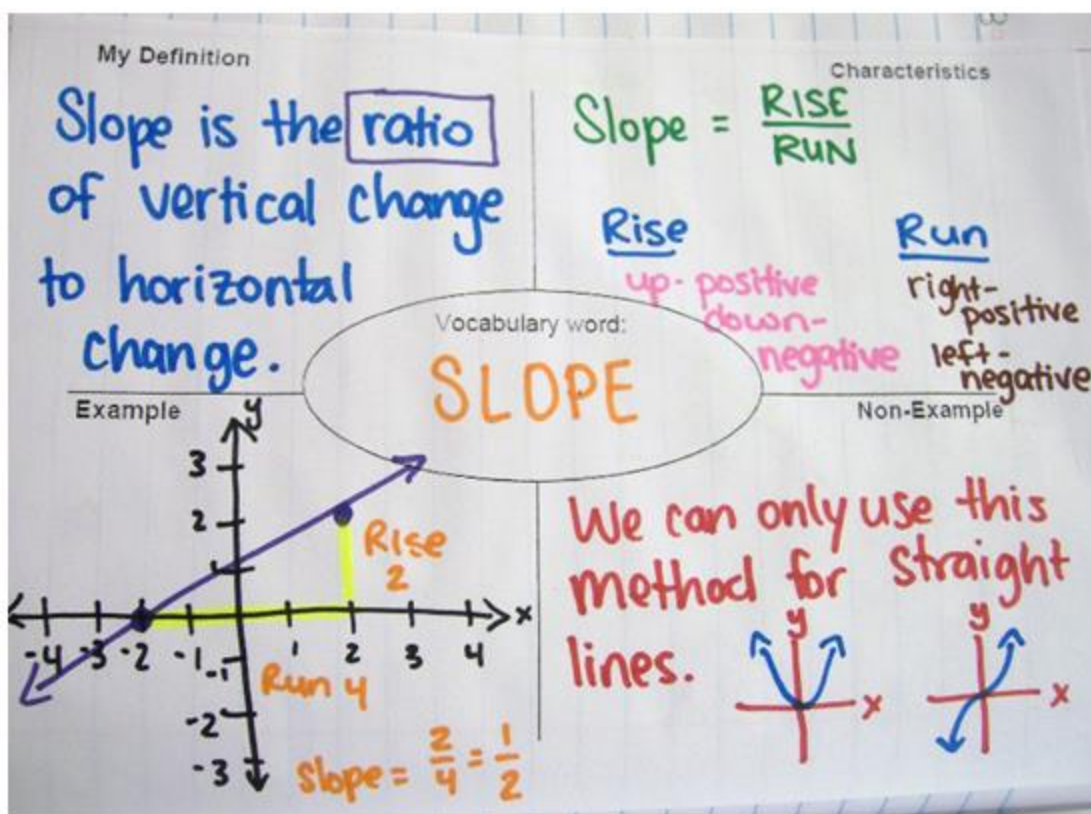 My Definition
Slope is the ratio
of vertical change
to horizontal
change.
Characteristics
Slope = RISE
RUN
Rise
up - positive
down-
negative
Run
right-
positive
left-
negative
Vocabulary word:
SLOPE
Example
y
3
2
1
x
-4 -3 -2 -1 1 2 3 4
-1
-2
-3
Rise
2
Run 4
slope = 2/4 = 1/2
Non-Example
We can only use this
method for straight
lines.
y
x
y
x